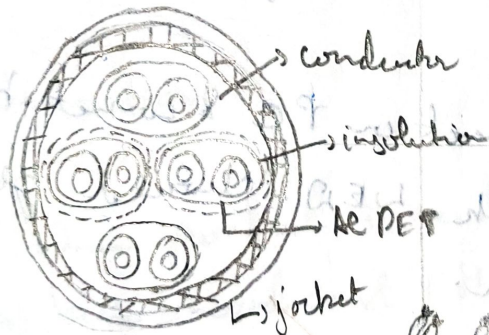 conductor
insulution
Al PET
jocket